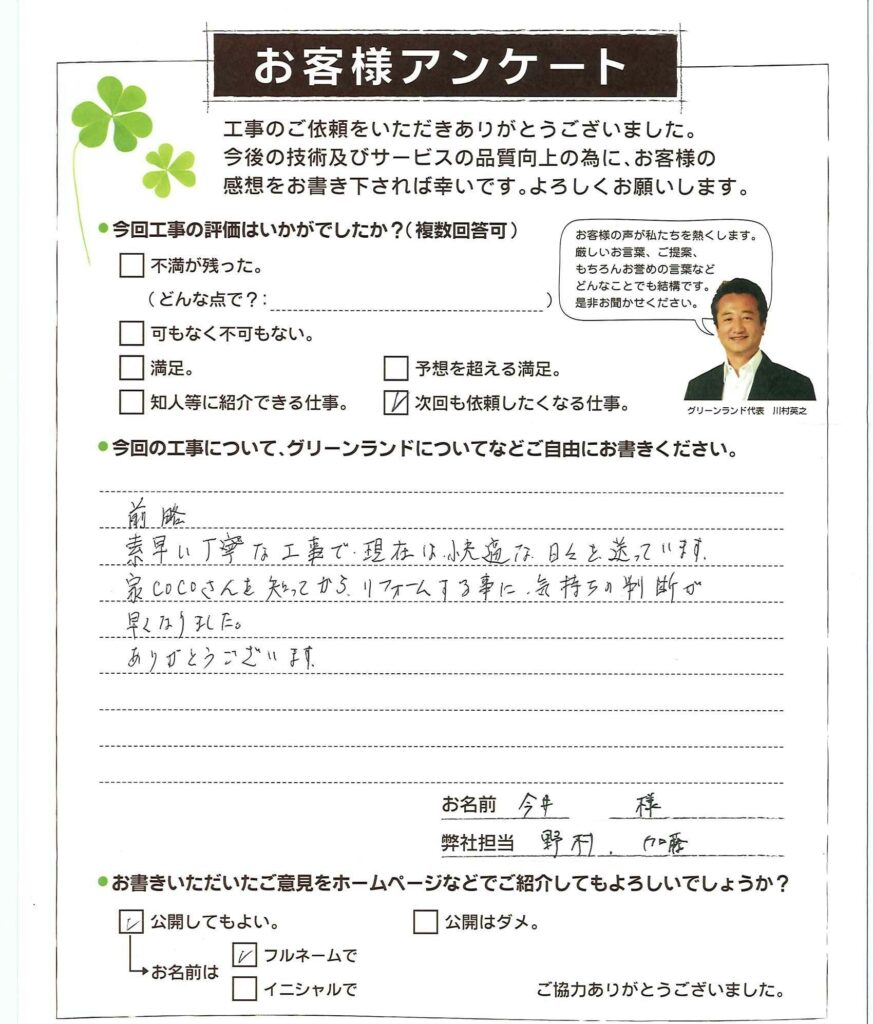 お客様アンケート
工事のご依頼をいただきありがとうございました。
今後の技術及びサービスの品質向上の為に、お客様の
感想をお書き下されば幸いです。よろしくお願いします。
今回工事の評価はいかがでしたか？（複数回答可）
不満が残った。
（どんな点で？：　）
可もなく不可もない。
満足。
予想を超える満足。
知人等に紹介できる仕事。
次回も依頼したくなる仕事。
お客様の声が私たちを熱くします。
厳しいお言葉、ご提案、
もちろんお誉めの言葉など
どんなことでも結構です。
是非お聞かせください。
グリーンランド代表　川村英之
今回の工事について、グリーンランドについてなどご自由にお書きください。
前略
素早い丁寧な工事で、現在は快適な日々を送っています。
家COCOさんを知ってから、リフォームする事に、気持ちの判断が
早くなりました。
ありがとうございます。
お名前　今井　様
弊社担当　野村．加藤
お書きいただいたご意見をホームページなどでご紹介してもよろしいでしょうか？
公開してもよい。
公開はダメ。
お名前は
フルネームで
イニシャルで
ご協力ありがとうございました。